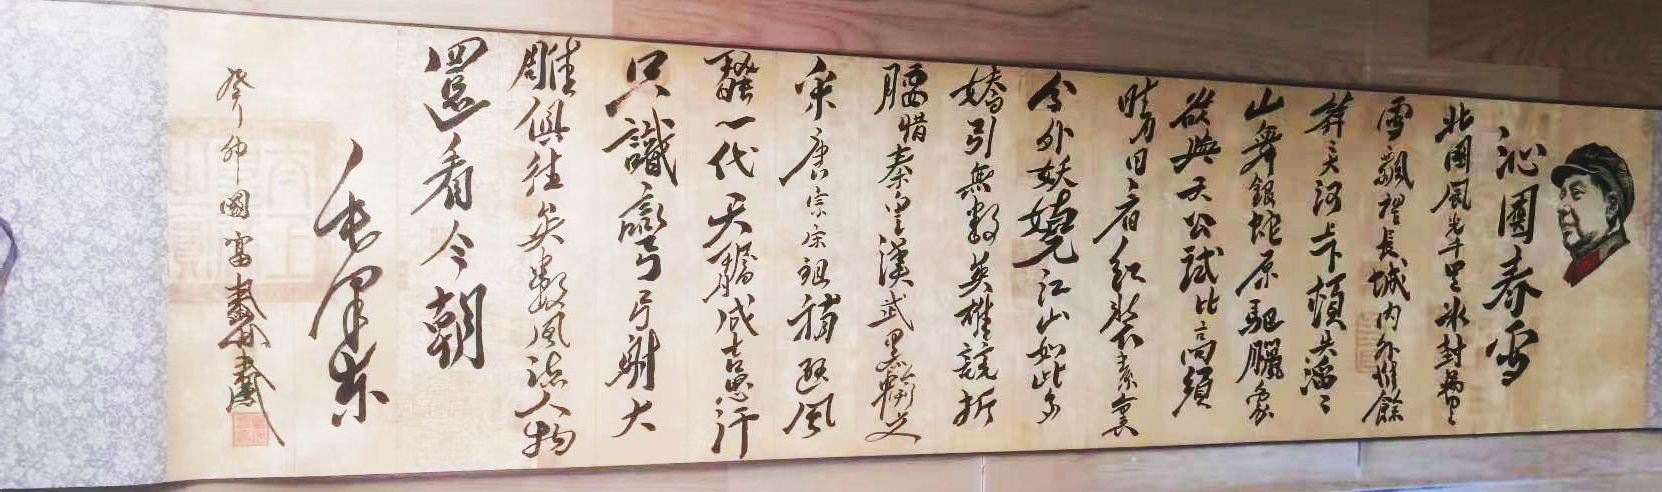 沁園春雪
北國風光千里冰封萬里
雪飄望長城內外惟餘
莽莽大河上下頓失滔滔
山舞銀蛇原馳臘象
欲與天公試比高須
晴日看紅裝素裹
分外妖嬈江山如此多
嬌引無數英雄競折
腰惜秦皇漢武略輸文
采唐宗宋祖稍遜風
騷一代天驕成吉思汗
只識彎弓射大
雕俱往矣數風流人物
還看今朝
毛澤東
癸卯國富